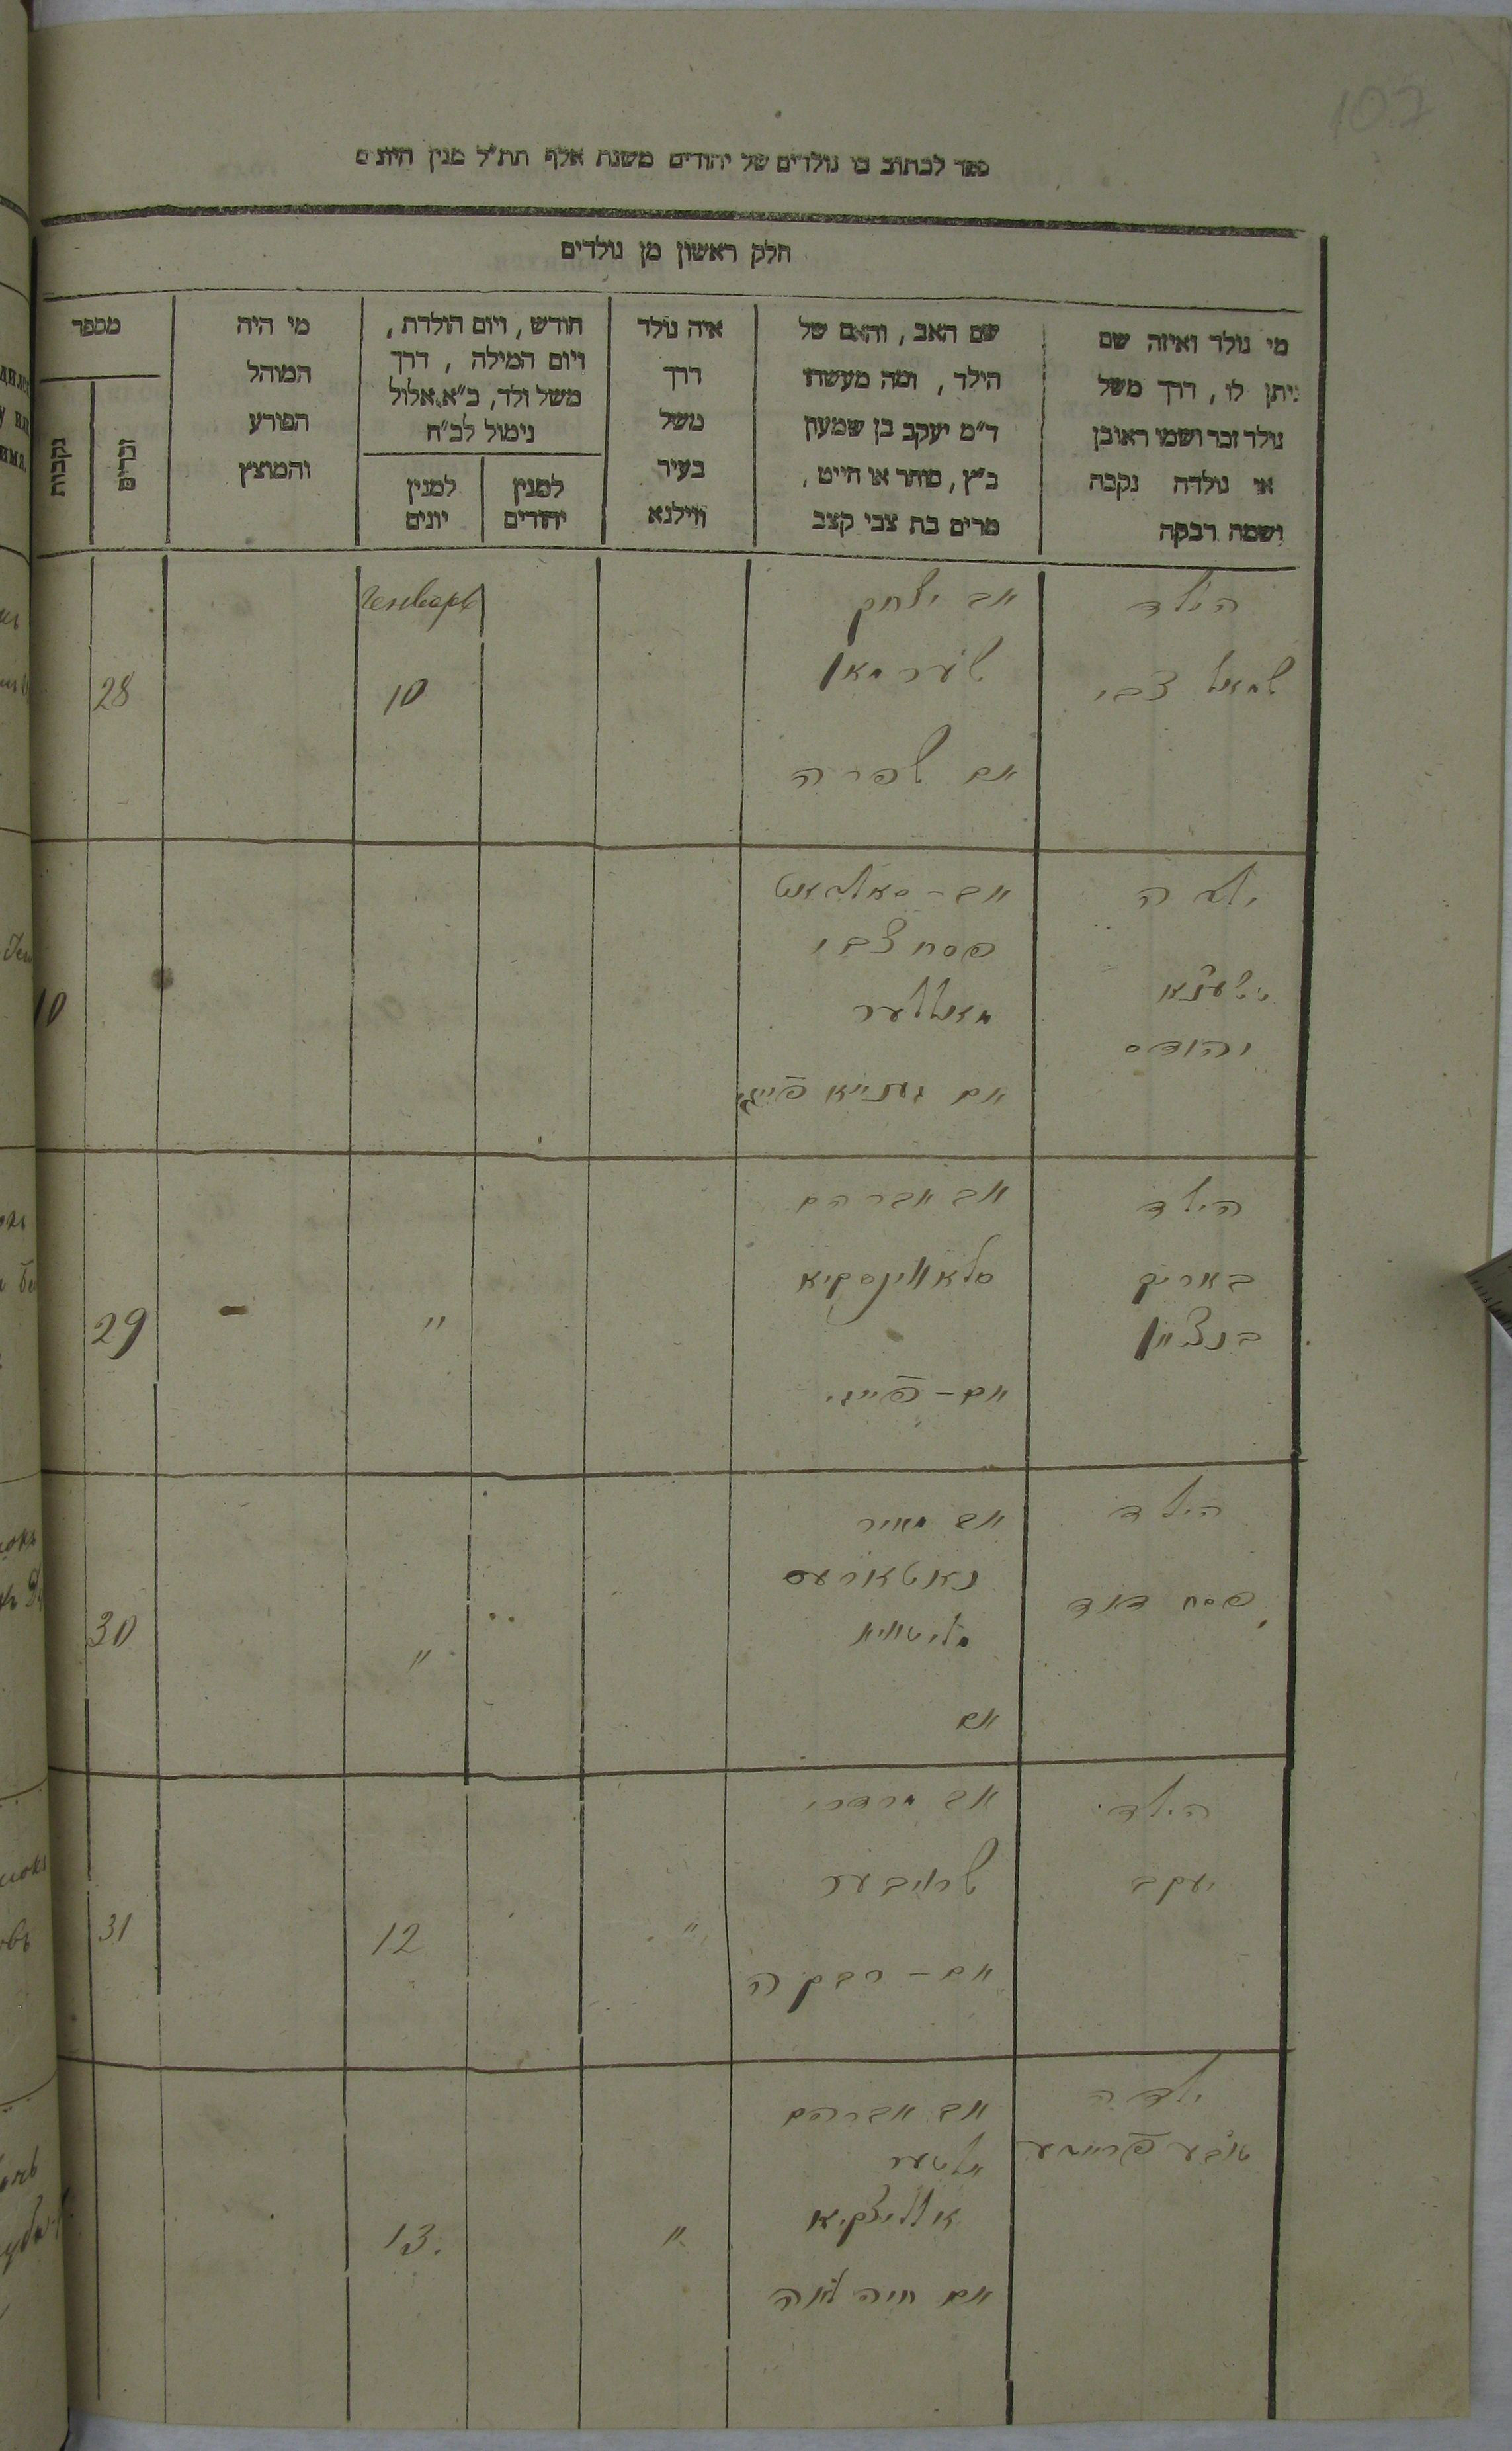 107
ספר לכתוב בו נולדים של יהודים משנת אלף תת"ל מנין היונים
חלק ראשון מן נולדים
מי נולד ואיזה שם
יתן לו, דרך משל
נולד זכר ושמו ראובן
או נולדה נקבה
ושמה רבקה
שם האב, והאם של
הילד, ומה מעשהו
ד"מ יעקב בן שמעון
כ"ץ, סוחר או חייט,
מרים בת צבי קצב
איה נולד
דרך
משל
בעיר
ווילנא
חודש, ויום הולדת,
ויום המילה, דרך
משל ולד, כ"א אלול
נימול לכ"ח
למנין
יהודים
למנין
יונים
מי היה
המוהל
הפורע
והמוצץ
מספר
זכרים
נקבות
הילד
שמואל צבי
אב יצחק
שערמאן
אם שפרה
Генваря
10
28
ילדה
יהודס
אב -
פסח צבי
אם
10
הילד
באריך
בנציון
אב אברהם
סלאווינסקיא
אם - פייגי
"
29
הילד
פסח דוד
אב מאיר
אם
"
30
הילד
יעקב
אב מרדכי
שרייבער
אם - רבקה
"
12
31
ילדה
טובע פריידע
אב אברהם
אלטער
אם חיה לאה
"
13.